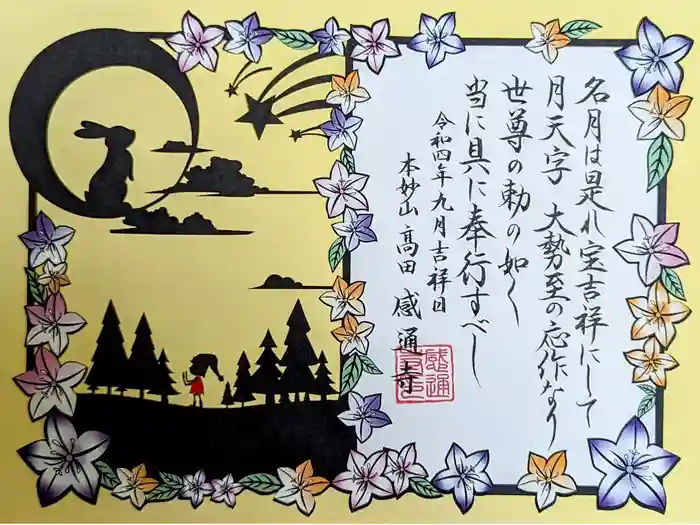 名月は是れ宝吉祥にして
月天子 大勢至の応作なり
世尊の勅の如く
当に具に奉行すべし
令和四年九月吉祥日
本妙山 髙田 感通寺